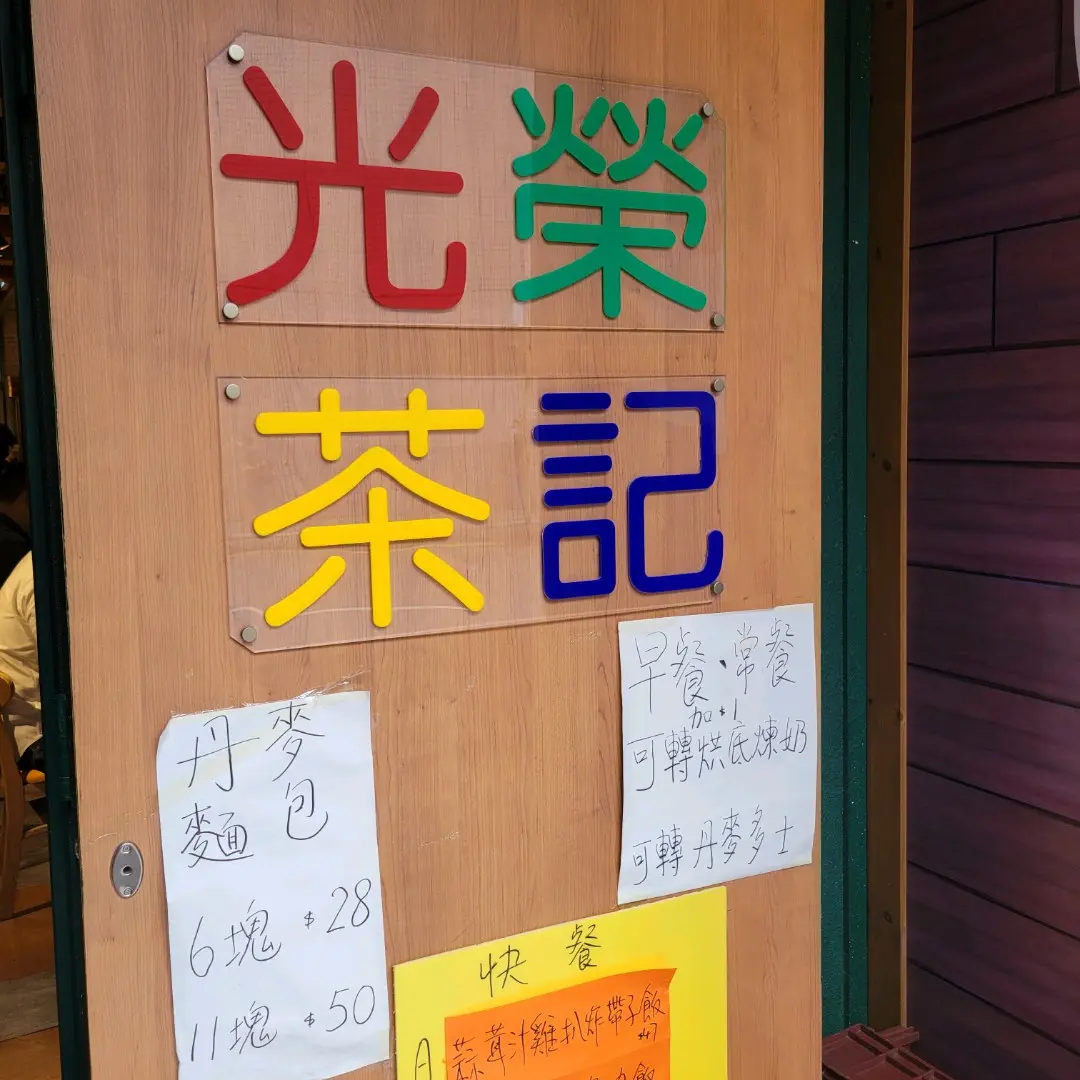 光榮
茶記
丹麥
麵包
6塊 $28
11塊 $50
早餐、常餐
加$1
可轉烘底煉奶
可轉丹麥多士
快餐
蒜茸汁雞扒炸帶子飯